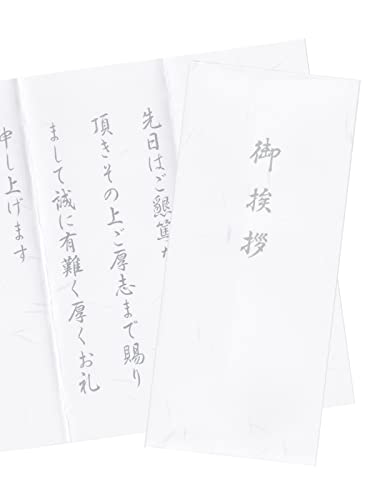 御挨拶
先日はご懇篤な
頂きその上ご厚志まで賜り
まして誠に有難く厚くお礼
申し上げます